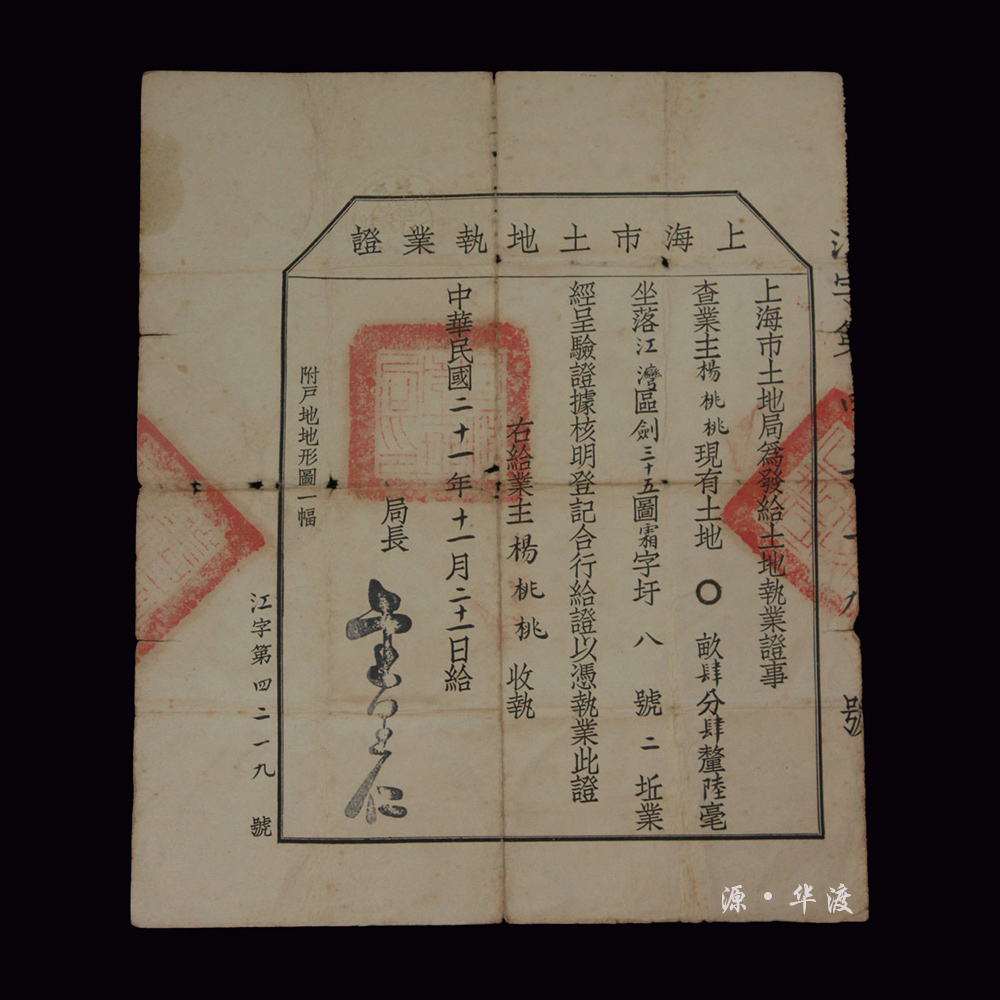 上海市土地執業證
上海市土地局為發給土地執業證事
查業主楊桃桃現有土地〇畝肆分肆釐陸毫
坐落江灣區劍三十五圖霜字圩八號二坵業
經呈驗證據核明登記合行給證以憑執業此證
右給業主楊桃桃收執
中華民國二十一年十一月二十一日給
局長
附戶地地形圖一幅
江字第四二一九號
號
源·华渡